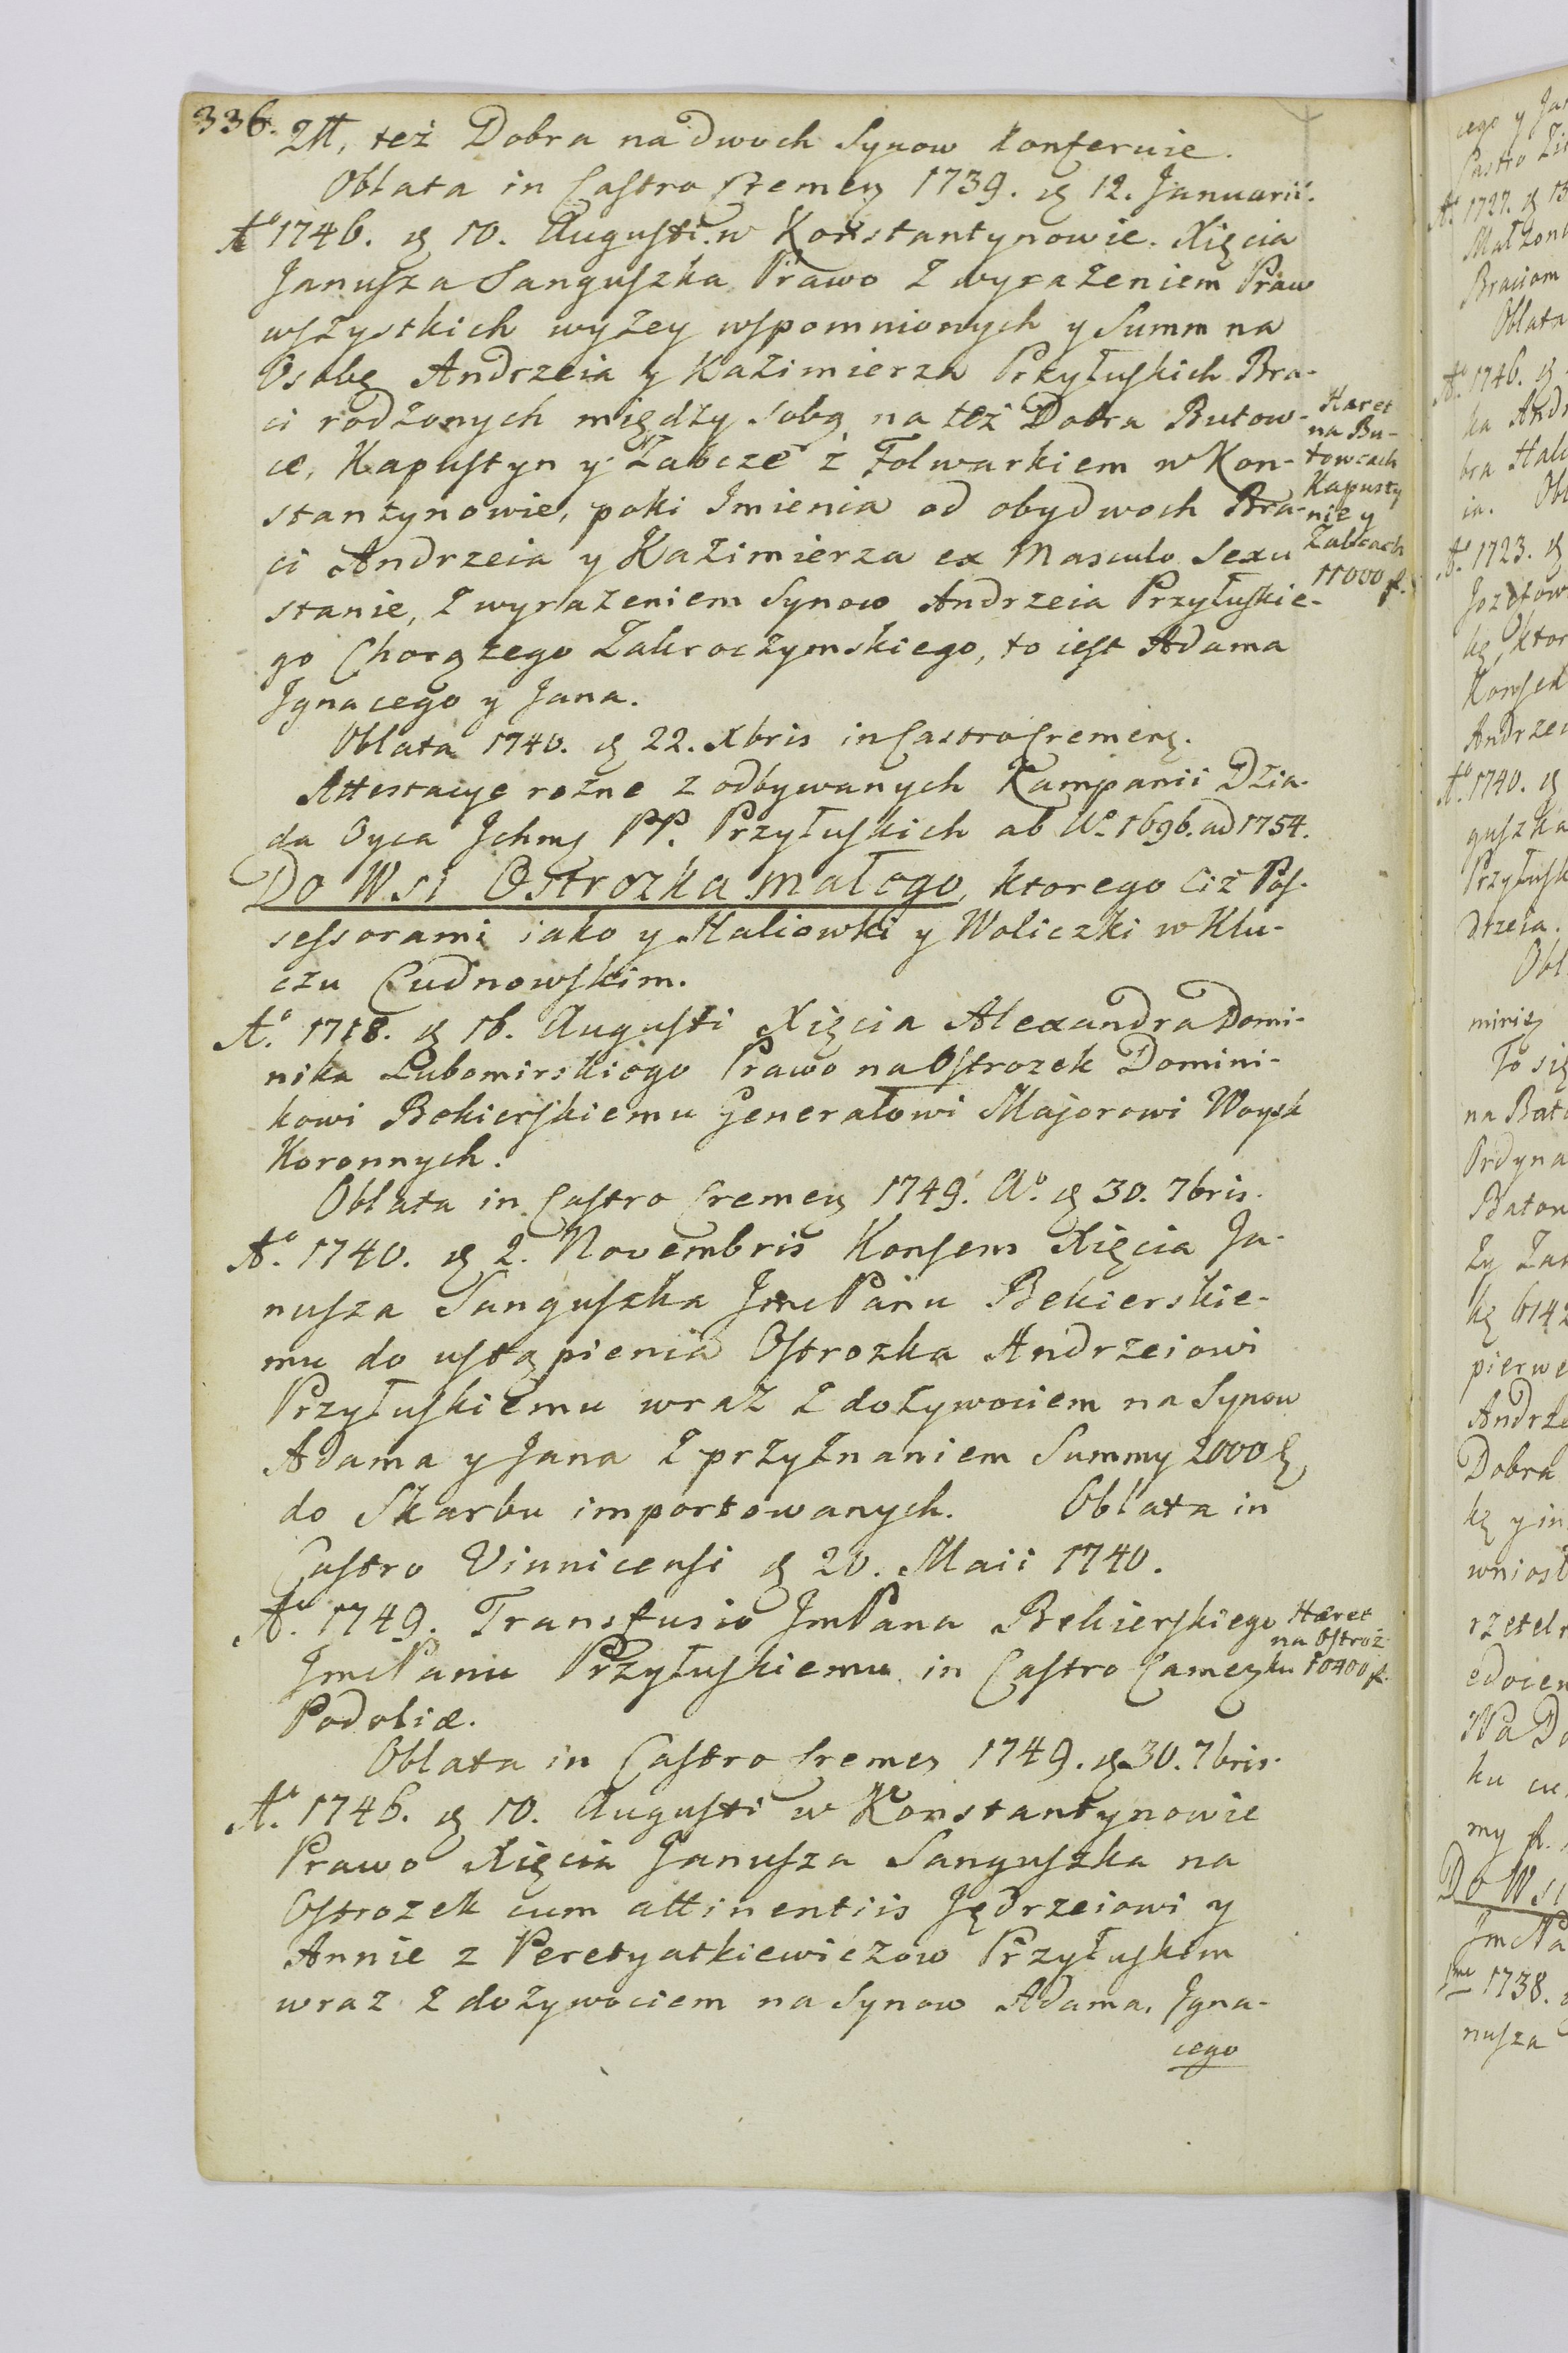 336.
2M, też Dobra na dwoch Synow konferuie.
Oblata in Castro Cremen 1739. d 12. Januarii.
Aº 1746. d 10. Augusti w Konstantynowie. Xięcia
Janusza Sanguszka Prawo z wyrażeniem Praw
wszystkich wyżey wspomnionych y Summ na
Osobę Andrzeia y Kazimierza Przyłuskich Bra-
ci rodzonych między sobą na też Dobra Butow-
ce, Kapustyn y Zabcze z Folwarkiem w Kon-
stantynowie, poki Imienia od obydwoch Bra-
ci Andrzeia y Kazimierza ex Masculo Sexu
stanie, z wyrażeniem Synow Andrzeia Przyłuskie-
go Chorążego Zakroczymskiego, to iest Adama
Ignacego y Jana.
Hæret
na Bu-
towcach
Kapusty
nie y
Zabcach
11000 f.
Oblata 1740. d 22. Xbris in Castro Cremen.
Attestacye rożne z odbywanych Kampanii Dzia-
da Oyca Ichmś PP. Przyłuskich ab Aº. 1696. ad 1754.
Do Wsi Ostrozka małego, ktorego ciż Pos-
sessorami iako y Haliowki y Woliczki w Klu-
czu Cudnowskim.
Aº. 1718. d 16. Augusti Xięcia Alexandra Domi-
nika Lubomirskiego Prawo na Ostrozek Domini-
kowi Bekierskiemu Generałowi Majorowi Woysk
Koronnych.
Oblata in Castro Cremen 1749. Aº. d 30. 7bris.
Aº. 1740. d 2. Novembris Konsens Xięcia Ja-
nusza Sanguszka Jmc Panu Bekierskie-
mu do ustąpienia Ostrozka Andrzeiowi
Przyłuskiemu wraz z dożywociem na Synow
Adama y Jana z przyznaniem Summy 2000
do Skarbu importowanych. Oblata in
Castro Vinnicensi d 20. Maii 1740.
Aº. 1749. Transfusio Jm Pana Bekierskiego
Jmc Panu Przyłuskiemu in Castro Camen
Podoliæ.
Hæret
na Ostroż
ku 10400 f.
Oblata in Castro Cremen 1749. d 30. 7bris.
Aº. 1746. d 10. Augusti w Konstantynowie
Prawo Xięcia Janusza Sanguszka na
Ostrozek cum attinentiis Jędrzeiowi y
Annie z Peretyatkiewiczow Przyłuskim
wraz z dożywociem na Synow Adama, Igna-
cego